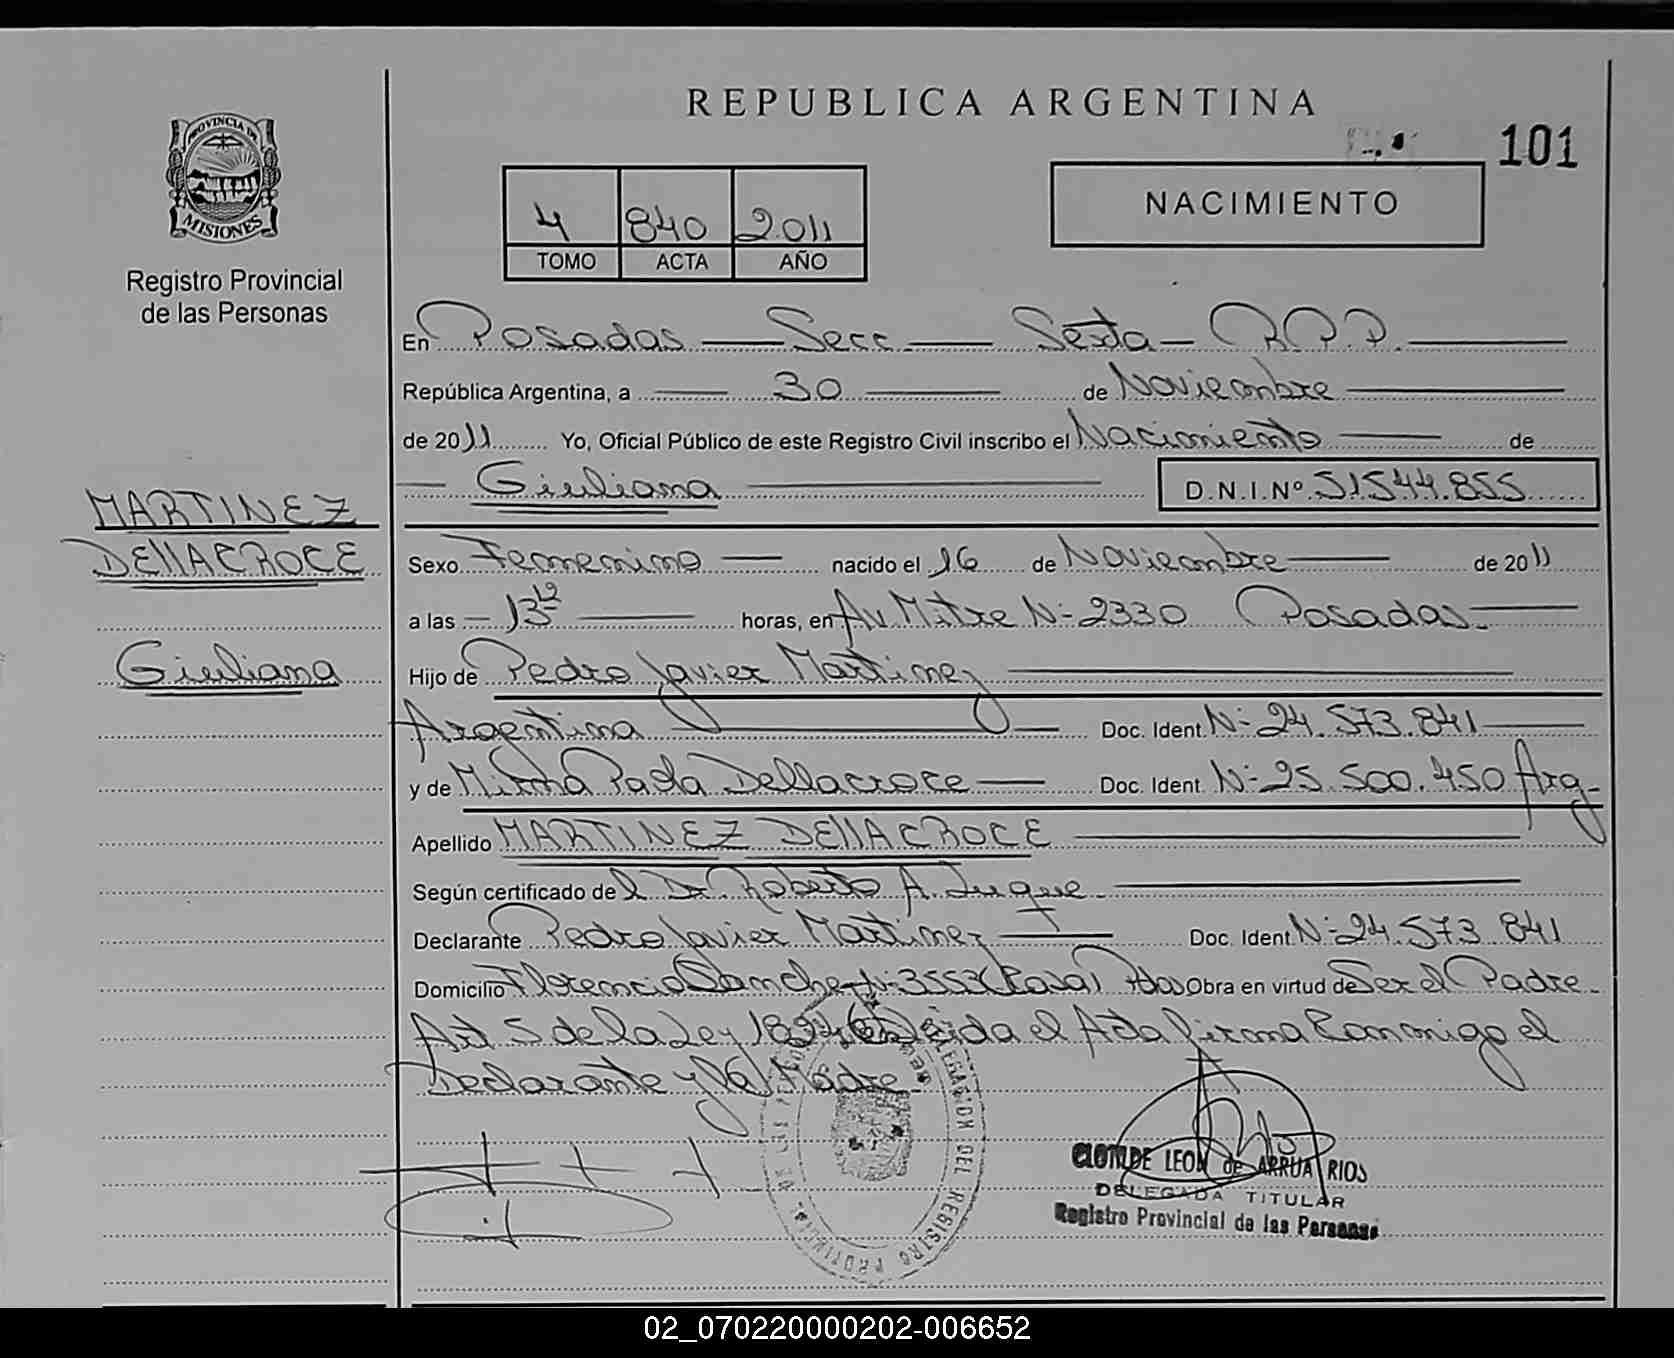 REPUBLICA ARGENTINA
101
PROVINCIA DE
MISIONES
Registro Provincial
de las Personas
4 840 2011
TOMO ACTA AÑO
NACIMIENTO
En Posadas — Secc — Sexta — R.P.P.
República Argentina, a — 30 — de Noviembre
de 2011 Yo, Oficial Público de este Registro Civil inscribo el Nacimiento — de
— Giuliana — D.N.I.Nº 51544.855
MARTINEZ
DEllACROCE
Giuliana
Sexo Femenino — nacido el 16 de Noviembre — de 2011
a las — 13 12 — horas, en Av Mitre N- 2330 Posadas.-
Hijo de Pedro Javier Martinez
Argentina — Doc. Ident. N- 24.573.841
y de Mirna Paola Dellacroce — Doc. Ident. N- 25.500.450 Arg-
Apellido MARTINEZ DEllACROCE
Según certificado del Dr. Roberto A. Luque
Declarante Pedro Javier Martinez — Doc. Ident N- 24.573.841
Domicilio Florencio Sanchez N- 3553 Pdas Obra en virtud de Ser el Padre-
Art 5 de la Ley el Acta firma Conmigo el
Declarante y la Madre.
DELEGACION DEL REGISTRO PROVINCIAL DE LAS PERSONAS
CLOTILDE LEON de ARRUA RIOS
DELEGADA TITULAR
Registro Provincial de las Personas
02_070220000202-006652